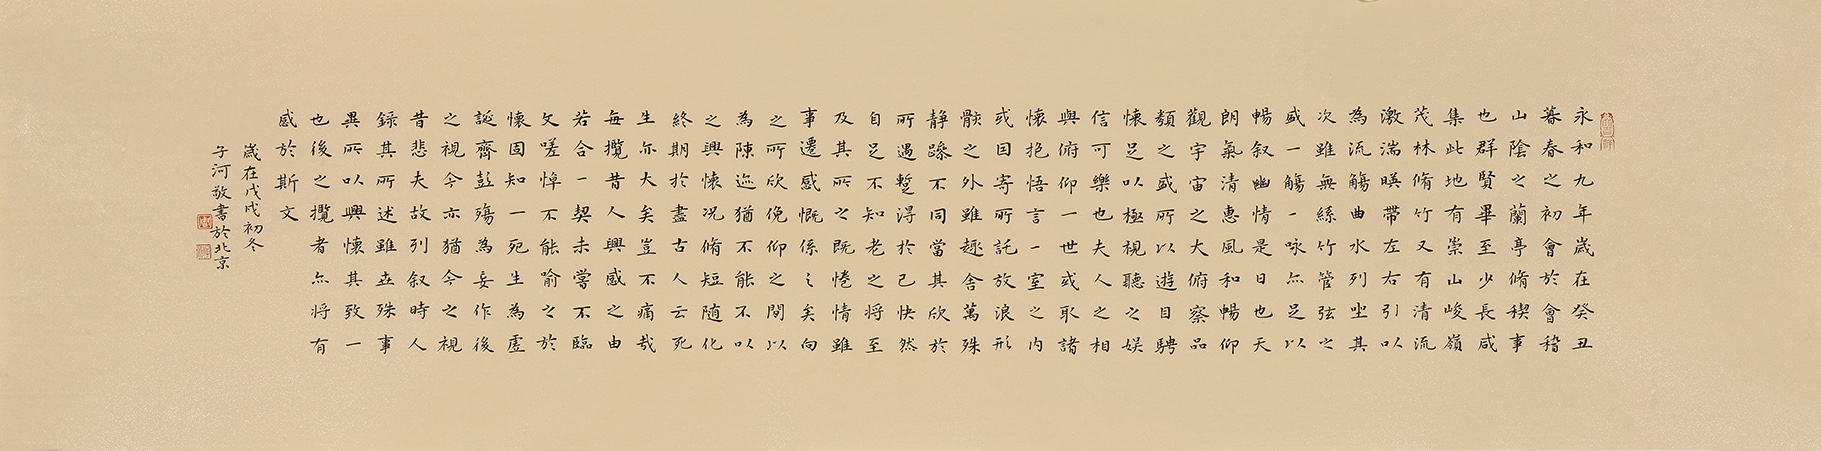 永和九年歲在癸丑
暮春之初會於會稽
山陰之蘭亭脩稧事
也群賢畢至少長咸
集此地有崇山峻嶺
茂林脩竹又有清流
激湍暎帶左右引以
為流觴曲水列坐其
次雖無絲竹管弦之
盛一觴一咏亦足以
暢叙幽情是日也天
朗氣清惠風和暢仰
觀宇宙之大俯察品
類之盛所以遊目騁
懷足以極視聽之娛
信可樂也夫人之相
與俯仰一世或取諸
懷抱悟言一室之內
或因寄所託放浪形
骸之外雖趣舍萬殊
靜躁不同當其欣於
所遇蹔得於己快然
自足不知老之將至
及其所之既惓情雖
事遷感慨係之矣向
之所欣俛仰之間以
為陳迹猶不能不以
之興懷况脩短隨化
終期於盡古人云死
生亦大矣豈不痛哉
每攬昔人興感之由
若合一契未嘗不臨
文嗟悼不能喻之於
懷固知一死生為虛
誕齊彭殤為妄作後
之視今亦猶今之視
昔悲夫故列叙時人
錄其所述雖世殊事
異所以興懷其致一
也後之攬者亦將有
感於斯文
歲在戊戌初冬
子河敬書於北京